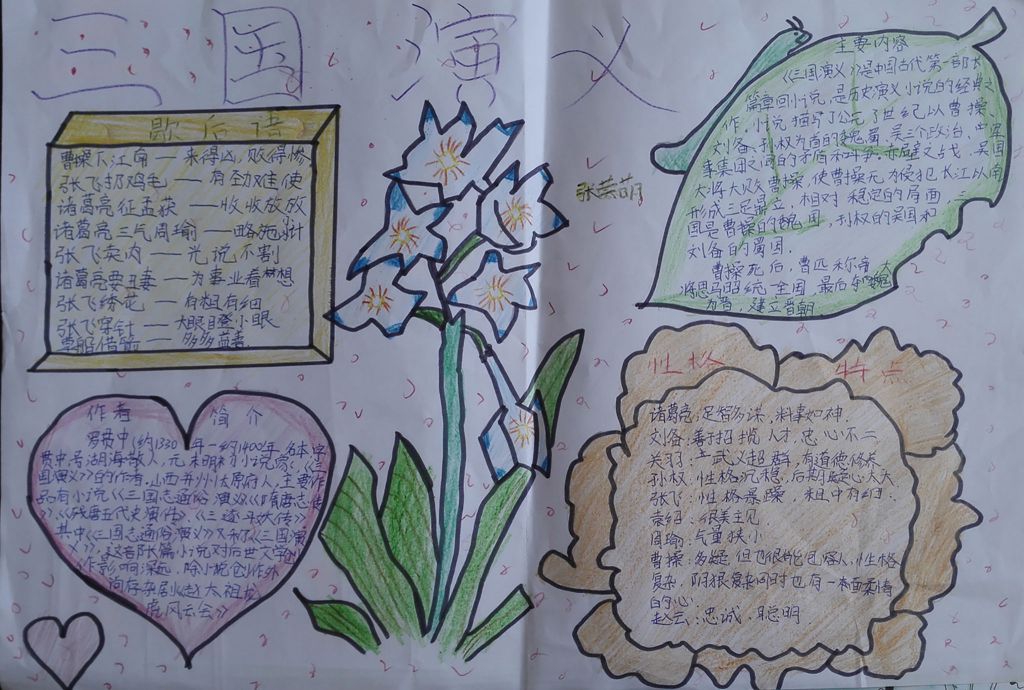 三国演义
歇后语
曹操下江南——来得凶，败得惨
张飞扔鸡毛——有劲难使
诸葛亮征孟获——收收放放
诸葛亮三气周瑜——略施小计
张飞卖肉——光说不割
诸葛亮娶丑妻——为事业着想
张飞绣花——有粗有细
张飞穿针——大眼瞪小眼
草船借箭——多多益善
张芸萌
主要内容
《三国演义》是中国古代第一部长
篇章回小说，是历史演义小说的经典之
作，小说描写了公元3世纪以曹操、
刘备、孙权为首的魏、蜀、吴三个政治、军
事集团之间的矛盾和斗争。赤壁之战，吴国
大将大败曹操，使曹操无力侵犯长江以南
形成三足鼎立，相对稳定的局面，三
国是曹操的魏国，孙权的吴国和
刘备的蜀国。
曹操死后，曹丕称帝，大
将司马昭统一全国，最后
为晋，建立晋朝
作者简介
罗贯中（约1330年—约1400年，名本，字
贯中，号湖海散人，元末明初小说家，《三
国演义》的作者。山西并州太原府人，主要作
品有小说《三国志通俗演义》《隋唐志传
》、《残唐五代史演传》、《三遂平妖传》
其中《三国志通俗演义》又称《三国演
义》，这部长篇小说对后世文学创
作影响深远，除小说创作外
尚存杂剧《赵太祖龙
虎风云会》
性格特点
诸葛亮：足智多谋，料事如神
刘备：善于招揽人才，忠心不二
关羽：武义超群，有道德修养
孙权：性格沉稳，后期疑心太大
张飞：性格暴躁，粗中有细
袁绍：很美主见
周瑜：气量狭小
曹操：多疑，但也很能包容人，性格
复杂，阴狠复杂同时也有一本面柔情
的心
赵云：忠诚，聪明